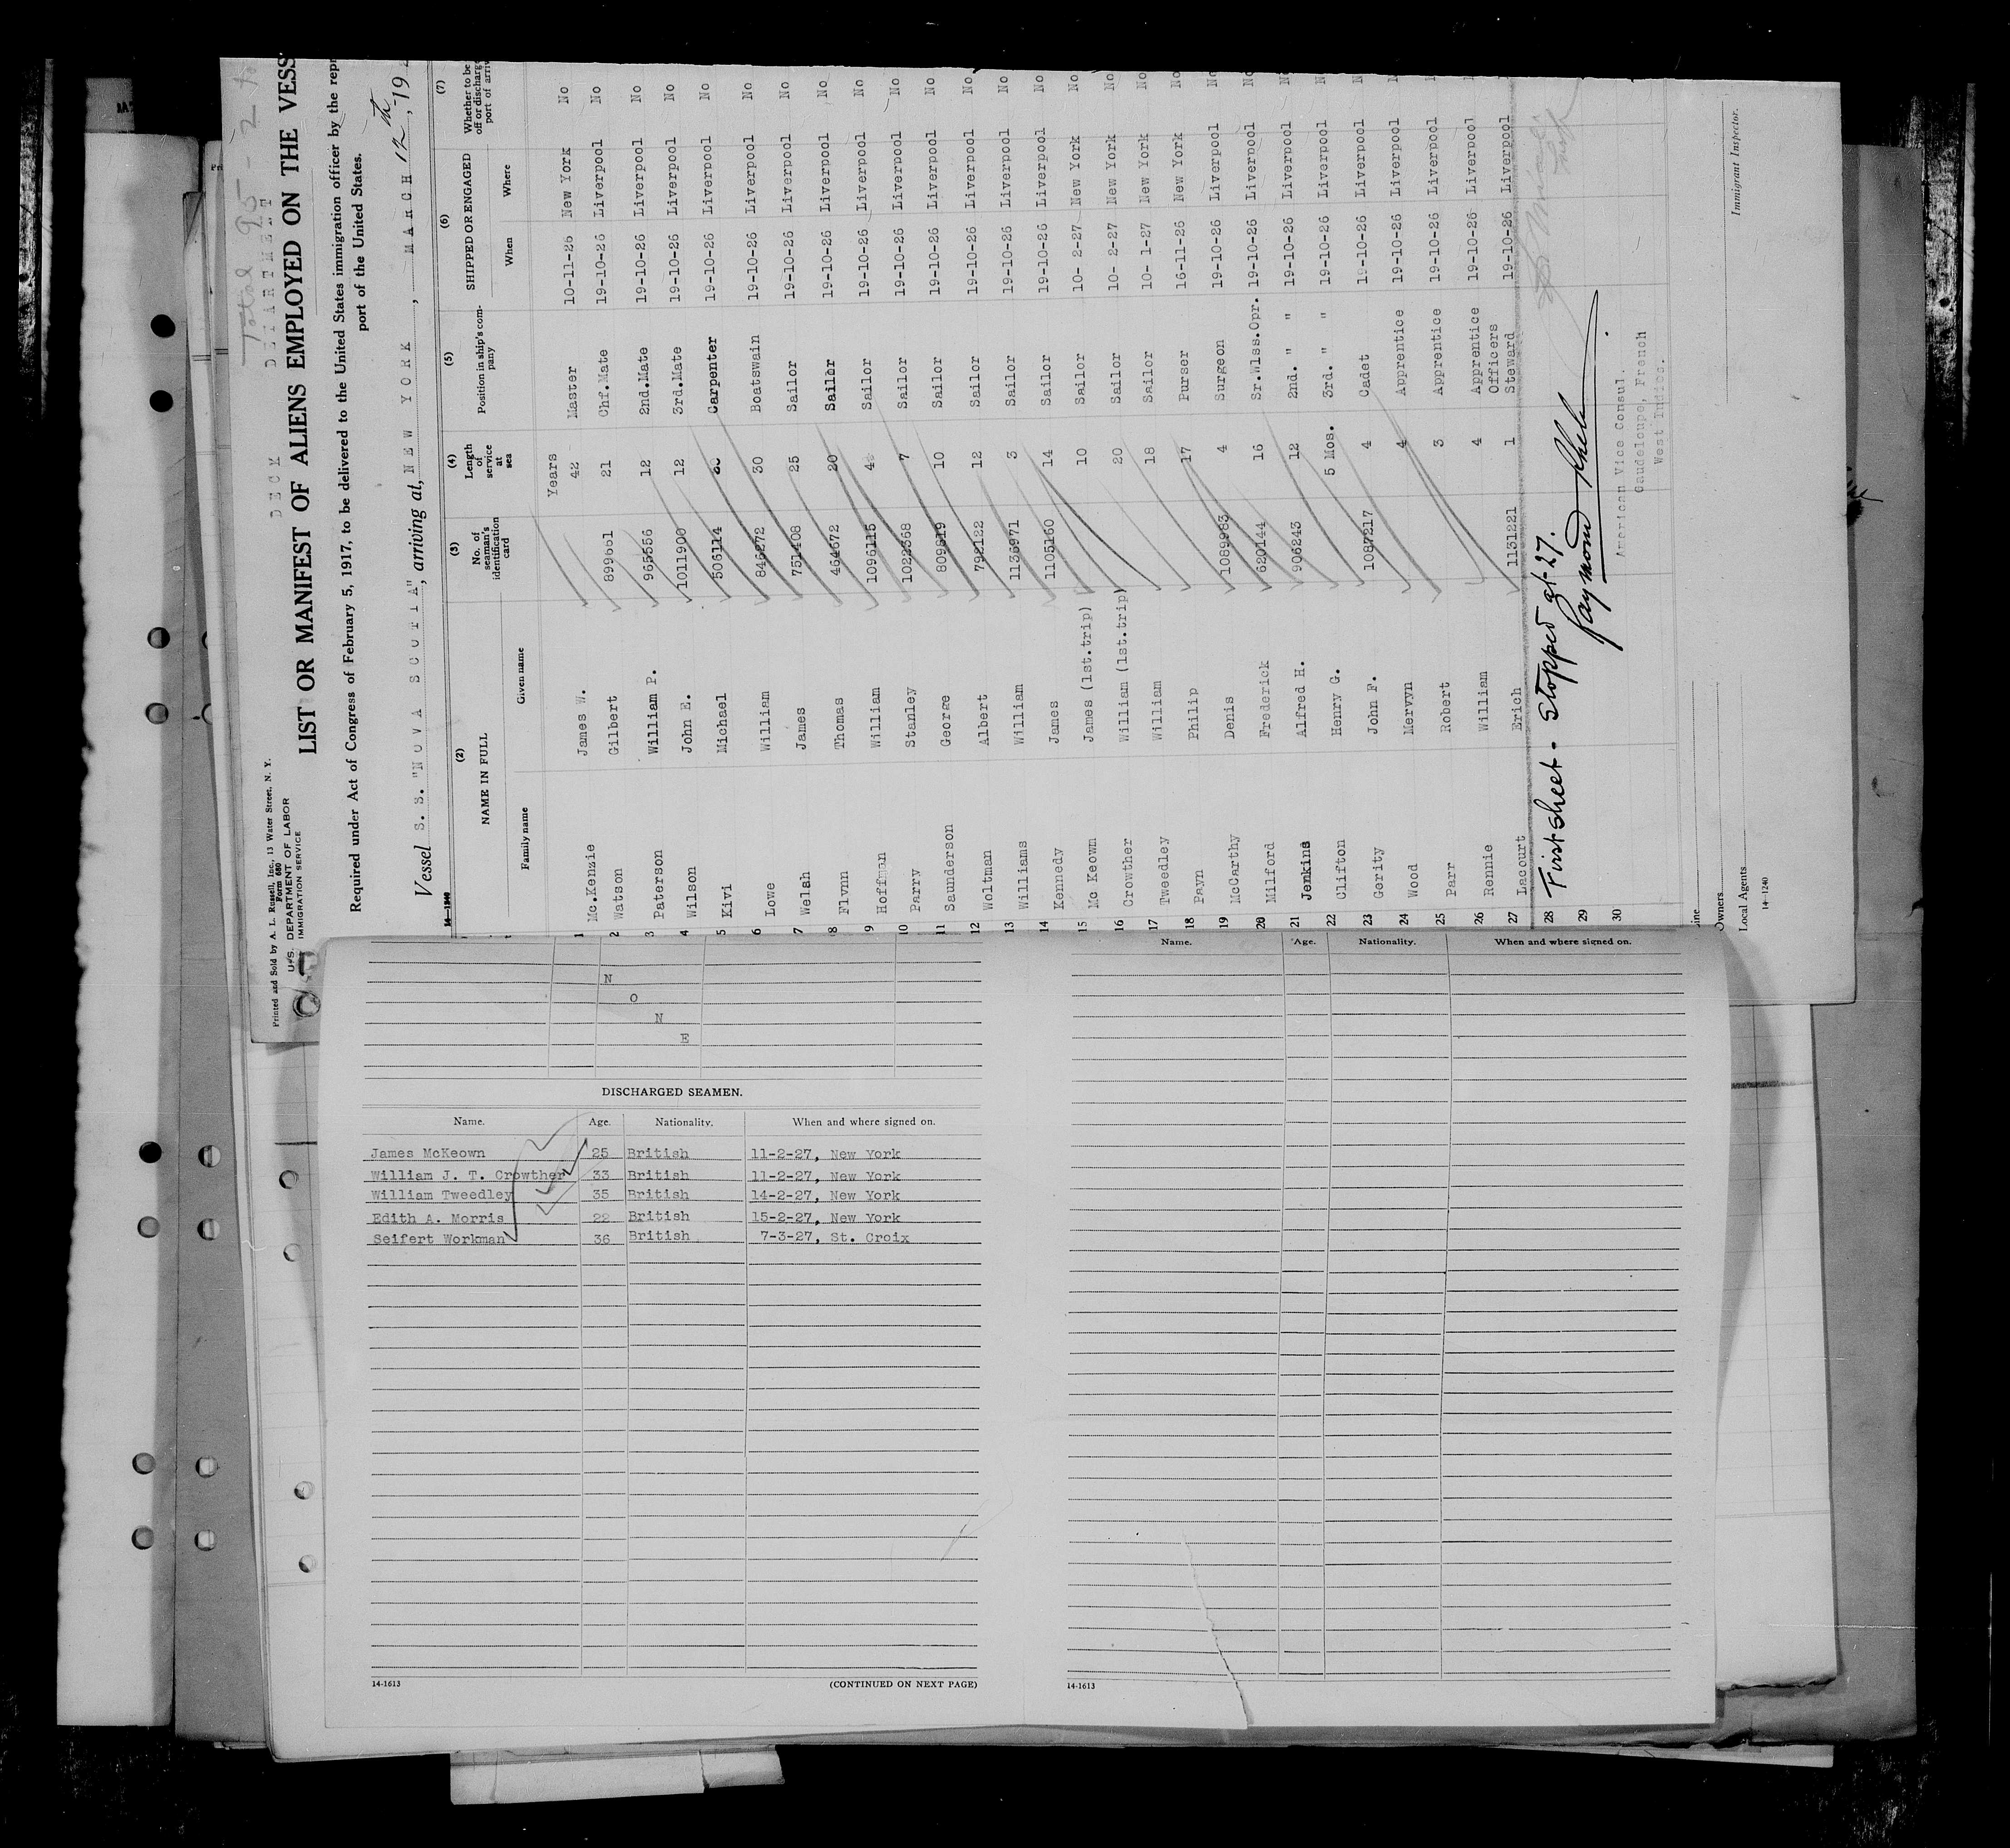 Total 95 - 2 to
DECK DEPARTMENT
Printed and Sold by A. L. Russell, Inc., 13 Water Street, N. Y.
Form 680
U.S. DEPARTMENT OF LABOR
IMMIGRATION SERVICE
LIST OR MANIFEST OF ALIENS EMPLOYED ON THE VESS
Required under Act of Congress of February 5, 1917, to be delivered to the United States immigration officer by the repr
port of the United States.
Vessel S. S. "NOVA SCOTIA", arriving at, NEW YORK, MARCH 12th, 192
(2) (3) (4) (5) (6) (7)
NAME IN FULL
Family name Given name
No. of seaman's identification card
Length of service at sea
Position in ship's company
SHIPPED OR ENGAGED
When Where
Whether to be
off or discharge
port of arriv
Years
1 Mc.Kenzie James W. 42 Master 10-11-26 New York No
2 Watson Gilbert 899661 21 Chf.Mate 19-10-26 Liverpool No
3 Paterson William P. 965556 12 2nd.Mate 19-10-26 Liverpool No
4 Wilson John E. 1011900 12 3rd.Mate 19-10-26 Liverpool No
5 Kivi Michael 506114 Carpenter 19-10-26 Liverpool No
6 Lowe William 846272 30 Boatswain 19-10-26 Liverpool No
7 Welsh James 751408 25 Sailor 19-10-26 Liverpool No
8 Flynn Thomas 464672 20 Sailor 19-10-26 Liverpool No
9 Hoffman William 1096115 4 Sailor 19-10-26 Liverpool No
10 Parry Stanley 1022368 7 Sailor 19-10-26 Liverpool No
11 Saunderson George 809819 10 Sailor 19-10-26 Liverpool No
12 Woltman Albert 792122 12 Sailor 19-10-26 Liverpool No
13 Williams William 1136971 3 Sailor 19-10-26 Liverpool No
14 Kennedy James 1105160 14 Sailor 19-10-26 Liverpool No
15 Mc Keown James (1st.trip) 10 Sailor 10- 2-27 New York No
16 Crowther William (1st.trip) 20 Sailor 10- 2-27 New York No
17 Tweedley William 18 Sailor 10- 1-27 New York No
18 Payn Philip 17 Purser 16-11-26 New York No
19 McCarthy Denis 1089983 4 Surgeon 19-10-26 Liverpool No
20 Milford Frederick 620144 16 Sr.Wlss.Opr. 19-10-26 Liverpool No
21 Jenkins Alfred H. 906243 12 2nd. " " 19-10-26 Liverpool No
22 Clifton Henry G. 5 Mos. 3rd. " " 19-10-26 Liverpool No
23 Gerity John F. 1087217 4 Cadet 19-10-26 Liverpool
24 Wood Mervyn 4 Apprentice 19-10-26 Liverpool
25 Parr Robert 3 Apprentice 19-10-26 Liverpool
26 Rennie William 4 Apprentice 19-10-26 Liverpool
Officers
27 Lacourt Erich 1131221 1 Steward 19-10-26 Liverpool
28 First sheet - Stopped at 27.
29
30
American Vice Consul.
Gaudeloupe, French
West Indies.
Owners
Local Agents
Immigrant Inspector.
14-1240
N
O
N
E
DISCHARGED SEAMEN.
Name. Age. Nationality. When and where signed on.
James McKeown 25 British 11-2-27, New York
William J. T. Crowther 33 British 11-2-27, New York
William Tweedley 35 British 14-2-27, New York
Edith A. Morris 22 British 15-2-27, New York
Seifert Workman 36 British 7-3-27, St. Croix
14-1613
(CONTINUED ON NEXT PAGE)
Name. Age. Nationality. When and where signed on.
14-1613